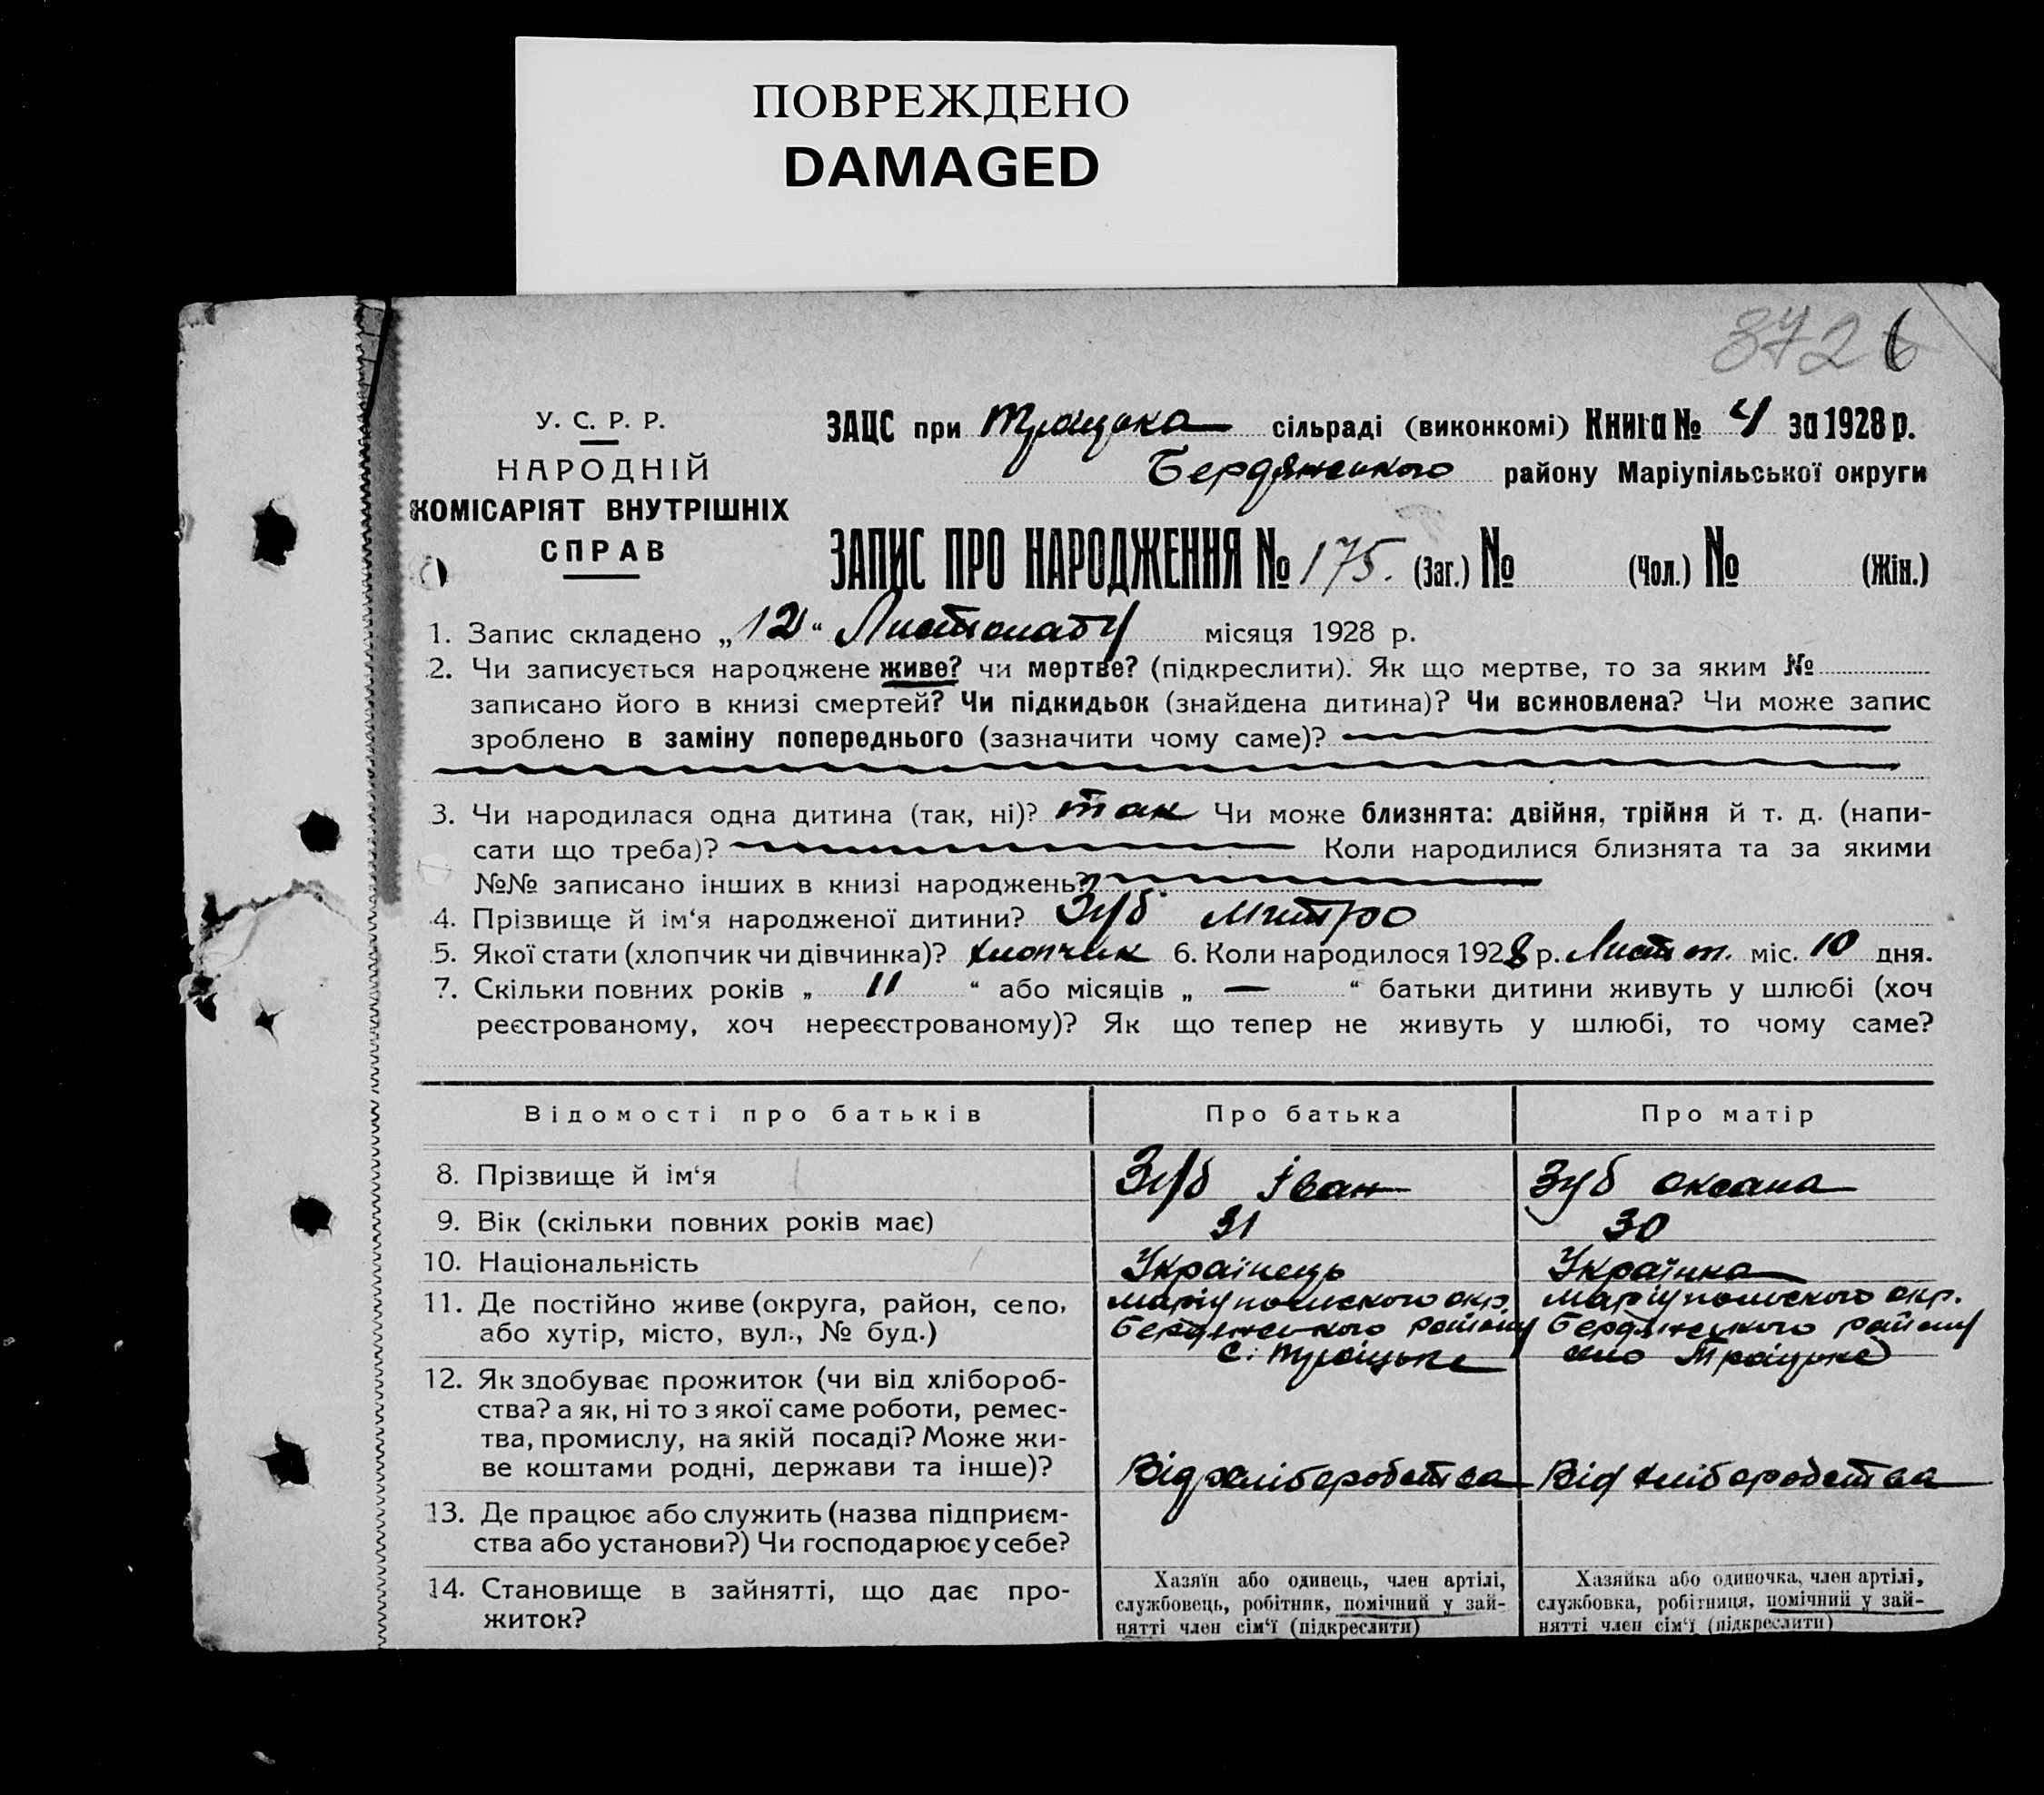 ПОВРЕЖДЕНО
DAMAGED
3726
У. С. Р. Р.
НАРОДНІЙ
КОМІСАРІЯТ ВНУТРІШНІХ
СПРАВ
ЗАЦС при Троіцька сільраді (виконкомі) Книга № 4 за 1928 р.
Бердянського району Маріупільської округи
ЗАПИС ПРО НАРОДЖЕННЯ № 175. (Заг.) № (Чол.) № (Жін.)
1. Запис складено „12“ Листопаду місяця 1928 р.
2. Чи записується народжене живе? чи мертве? (підкреслити). Як що мертве, то за яким №
записано його в книзі смертей? Чи підкидьок (знайдена дитина)? Чи всиновлена? Чи може запис
зроблено в заміну попереднього (зазначити чому саме)?
3. Чи народилася одна дитина (так, ні)? так Чи може близнята: двійня, трійня й т. д. (напи-
сати що треба)? Коли народилися близнята та за якими
№№ записано інших в книзі народжень?
4. Прізвище й ім‘я народженої дитини? Зуб Митро
5. Якої стати (хлопчик чи дівчинка)? хлопчик 6. Коли народилося 1928 р. Листоп. міс. 10 дня.
7. Скільки повних років „ 11 “ або місяців „ — “ батьки дитини живуть у шлюбі (хоч
реєстрованому, хоч нереєстрованому)? Як що тепер не живуть у шлюбі, то чому саме?
Відомості про батьків Про батька Про матір
8. Прізвище й ім‘я Зуб Іван Зуб Оксана
9. Вік (скільки повних років має) 31 30
10. Національність Українець Українка
11. Де постійно живе (округа, район, село,
або хутір, місто, вул., № буд.)
Маріупольского окр.
Бердянського району
с. Троіцьке
Маріупольского окр.
Бердянського району
село Троіцьке
12. Як здобуває прожиток (чи від хлібороб-
ства? а як, ні то з якої саме роботи, ремес-
тва, промислу, на якій посаді? Може жи-
ве коштами родні, держави та інше)?
Від хліборобства
Від хліборобства
13. Де працює або служить (назва підприєм-
ства або установи?) Чи господарює у себе?
14. Становище в зайнятті, що дає про-
житок?
Хазяїн або одинець, член артілі,
службовець, робітник, помічний у зай-
нятті член сім‘ї (підкреслити)
Хазяйка або одиночка, член артілі,
службовка, робітниця, помічний у зай-
нятті член сім‘ї (підкреслити)